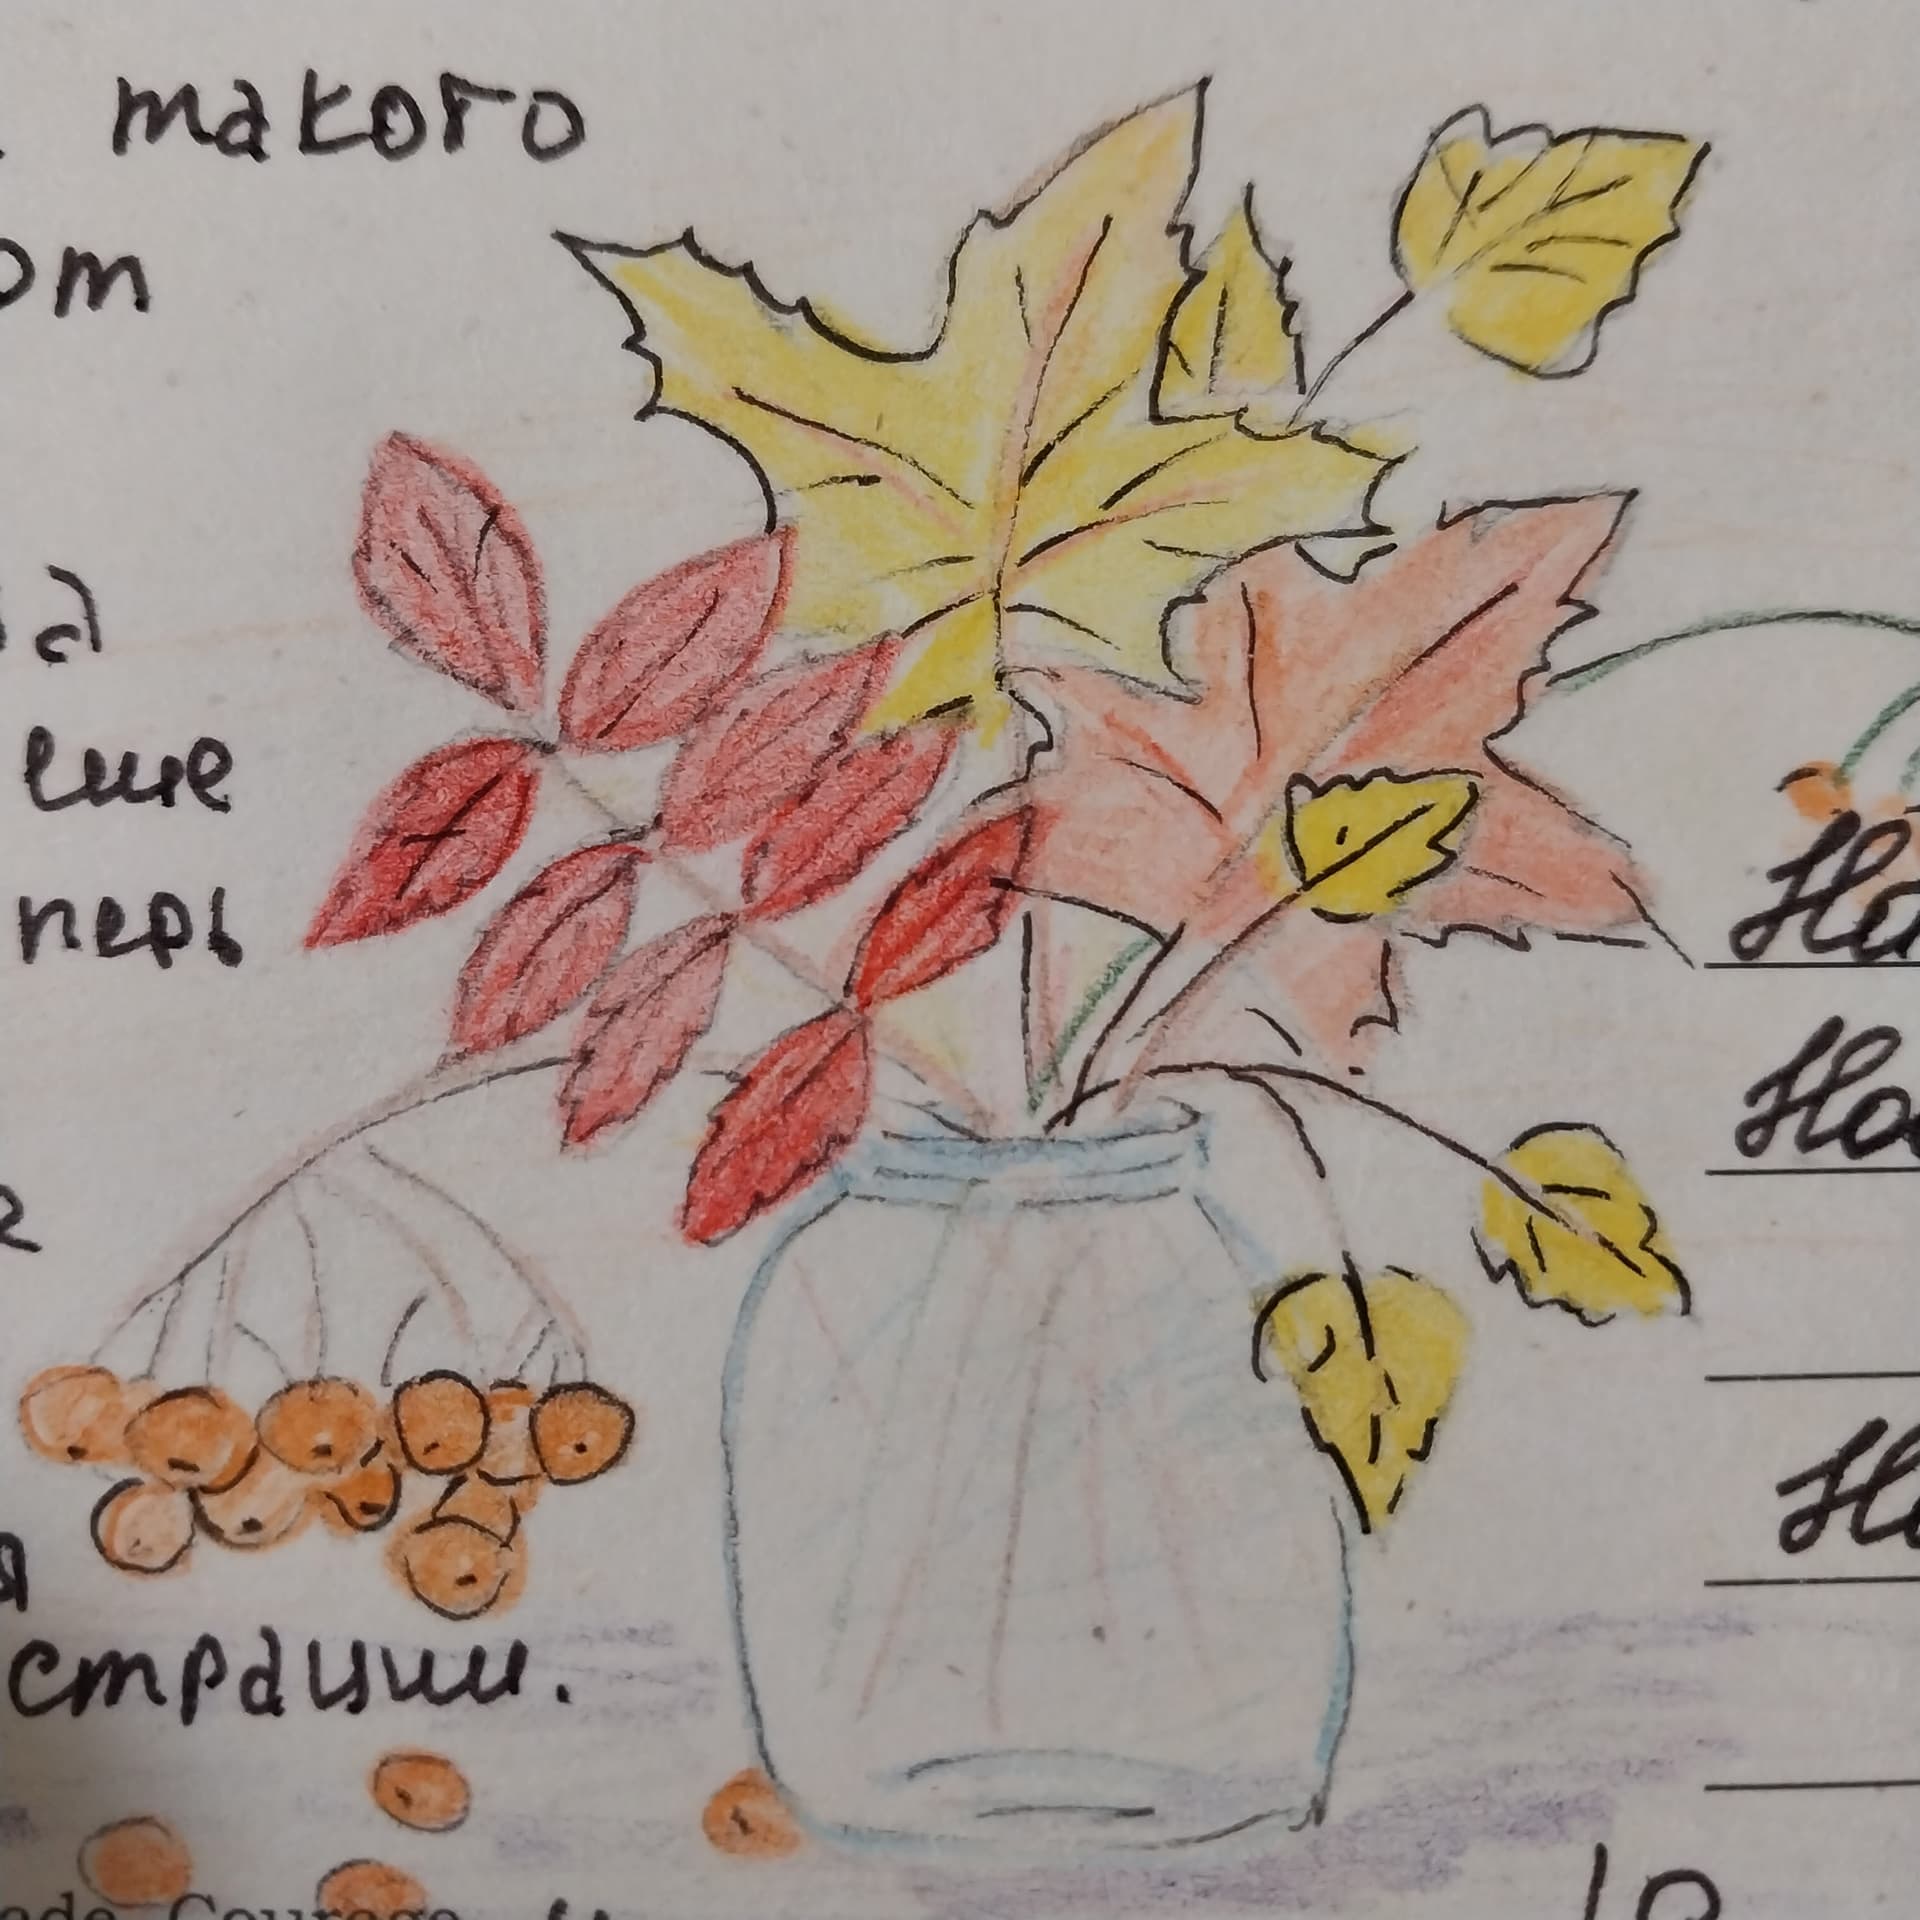 такого
от
а
еше
перь
я
страции.
На
Но
Н
10
ade Courage